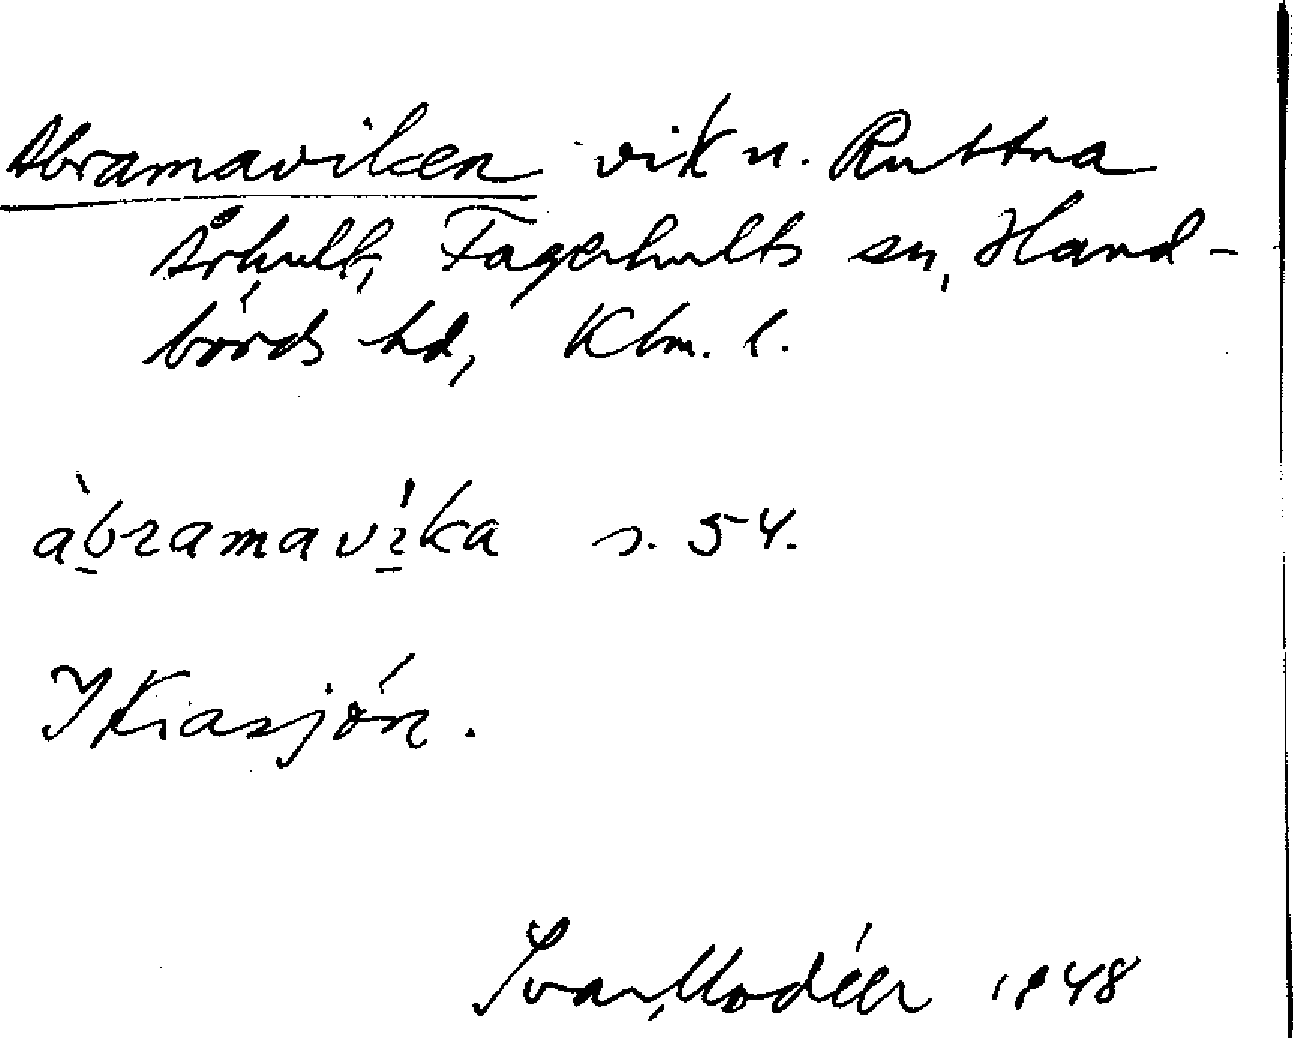 Abramaviken vik u. Ruttna
Århult, Fagerhults sn, Hand-
börds hd, Klm. l.
àbramavi̠ka s. 54.
I Kiasjön.
Ivar Modéer 1948